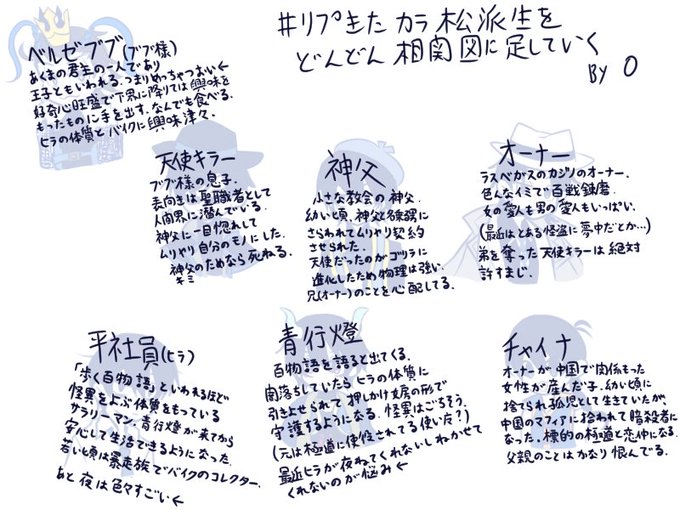 #リプきたカラ松派生を
どんどん相関図に足していく
BY O
ベルゼブブ(ブブ様)
あくまの君主の一人であり
王子ともいわれる。つまりめっちゃつよい←
好奇心旺盛で下界に降りては興味を
もったものに手を出す。なんでも食べる。
ヒラの体質とバイクに興味津々。
天使キラー
ブブ様の息子。
表向きは聖職者として
人間界に潜んでいる。
神父に一目惚れして
ムリやり自分のモノにした。
神父のためなら死ねる。
キミ
神父
小さな教会の神父。
幼い頃、神父と
さらわれてムリやり契約
させられた。
天使だったのがゴリラに
進化したため物理は強い。
兄(オーナー)のことを心配してる。
オーナー
ラスベガスのカジノのオーナー。
色んなイミで百戦錬磨。
女の愛人も男の愛人もいっぱい。
(最近はとある怪盗に夢中だとか…)
弟を奪った天使キラーは絶対
許すまじ。
平社員(ヒラ)
「歩く百物語」といわれるほど
怪異をよぶ体質をもっている
サラリーマン。青行燈が来てから
安心して生活できるようになった。
若い頃は暴走族でバイクのコレクター。
あと夜は色々すごい←
青行燈
百物語を語ると出てくる。
闇落ちしていたらヒラの体質に
引きよせられて押しかけ女房の形で
守護するようになる。怪異はごちそう。
(元は極道に使役されてる使い左?)
最近ヒラが夜ねてくれないしねかせて
くれないのが悩み←
チャイナ
オーナーが中国で関係もった
女性が産んだ子。幼い頃に
捨てられ孤児として生きていたが、
中国のマフィアに拾われて暗殺者に
なった。標的の極道と恋仲になる。
父親のことはかなり恨んでる。